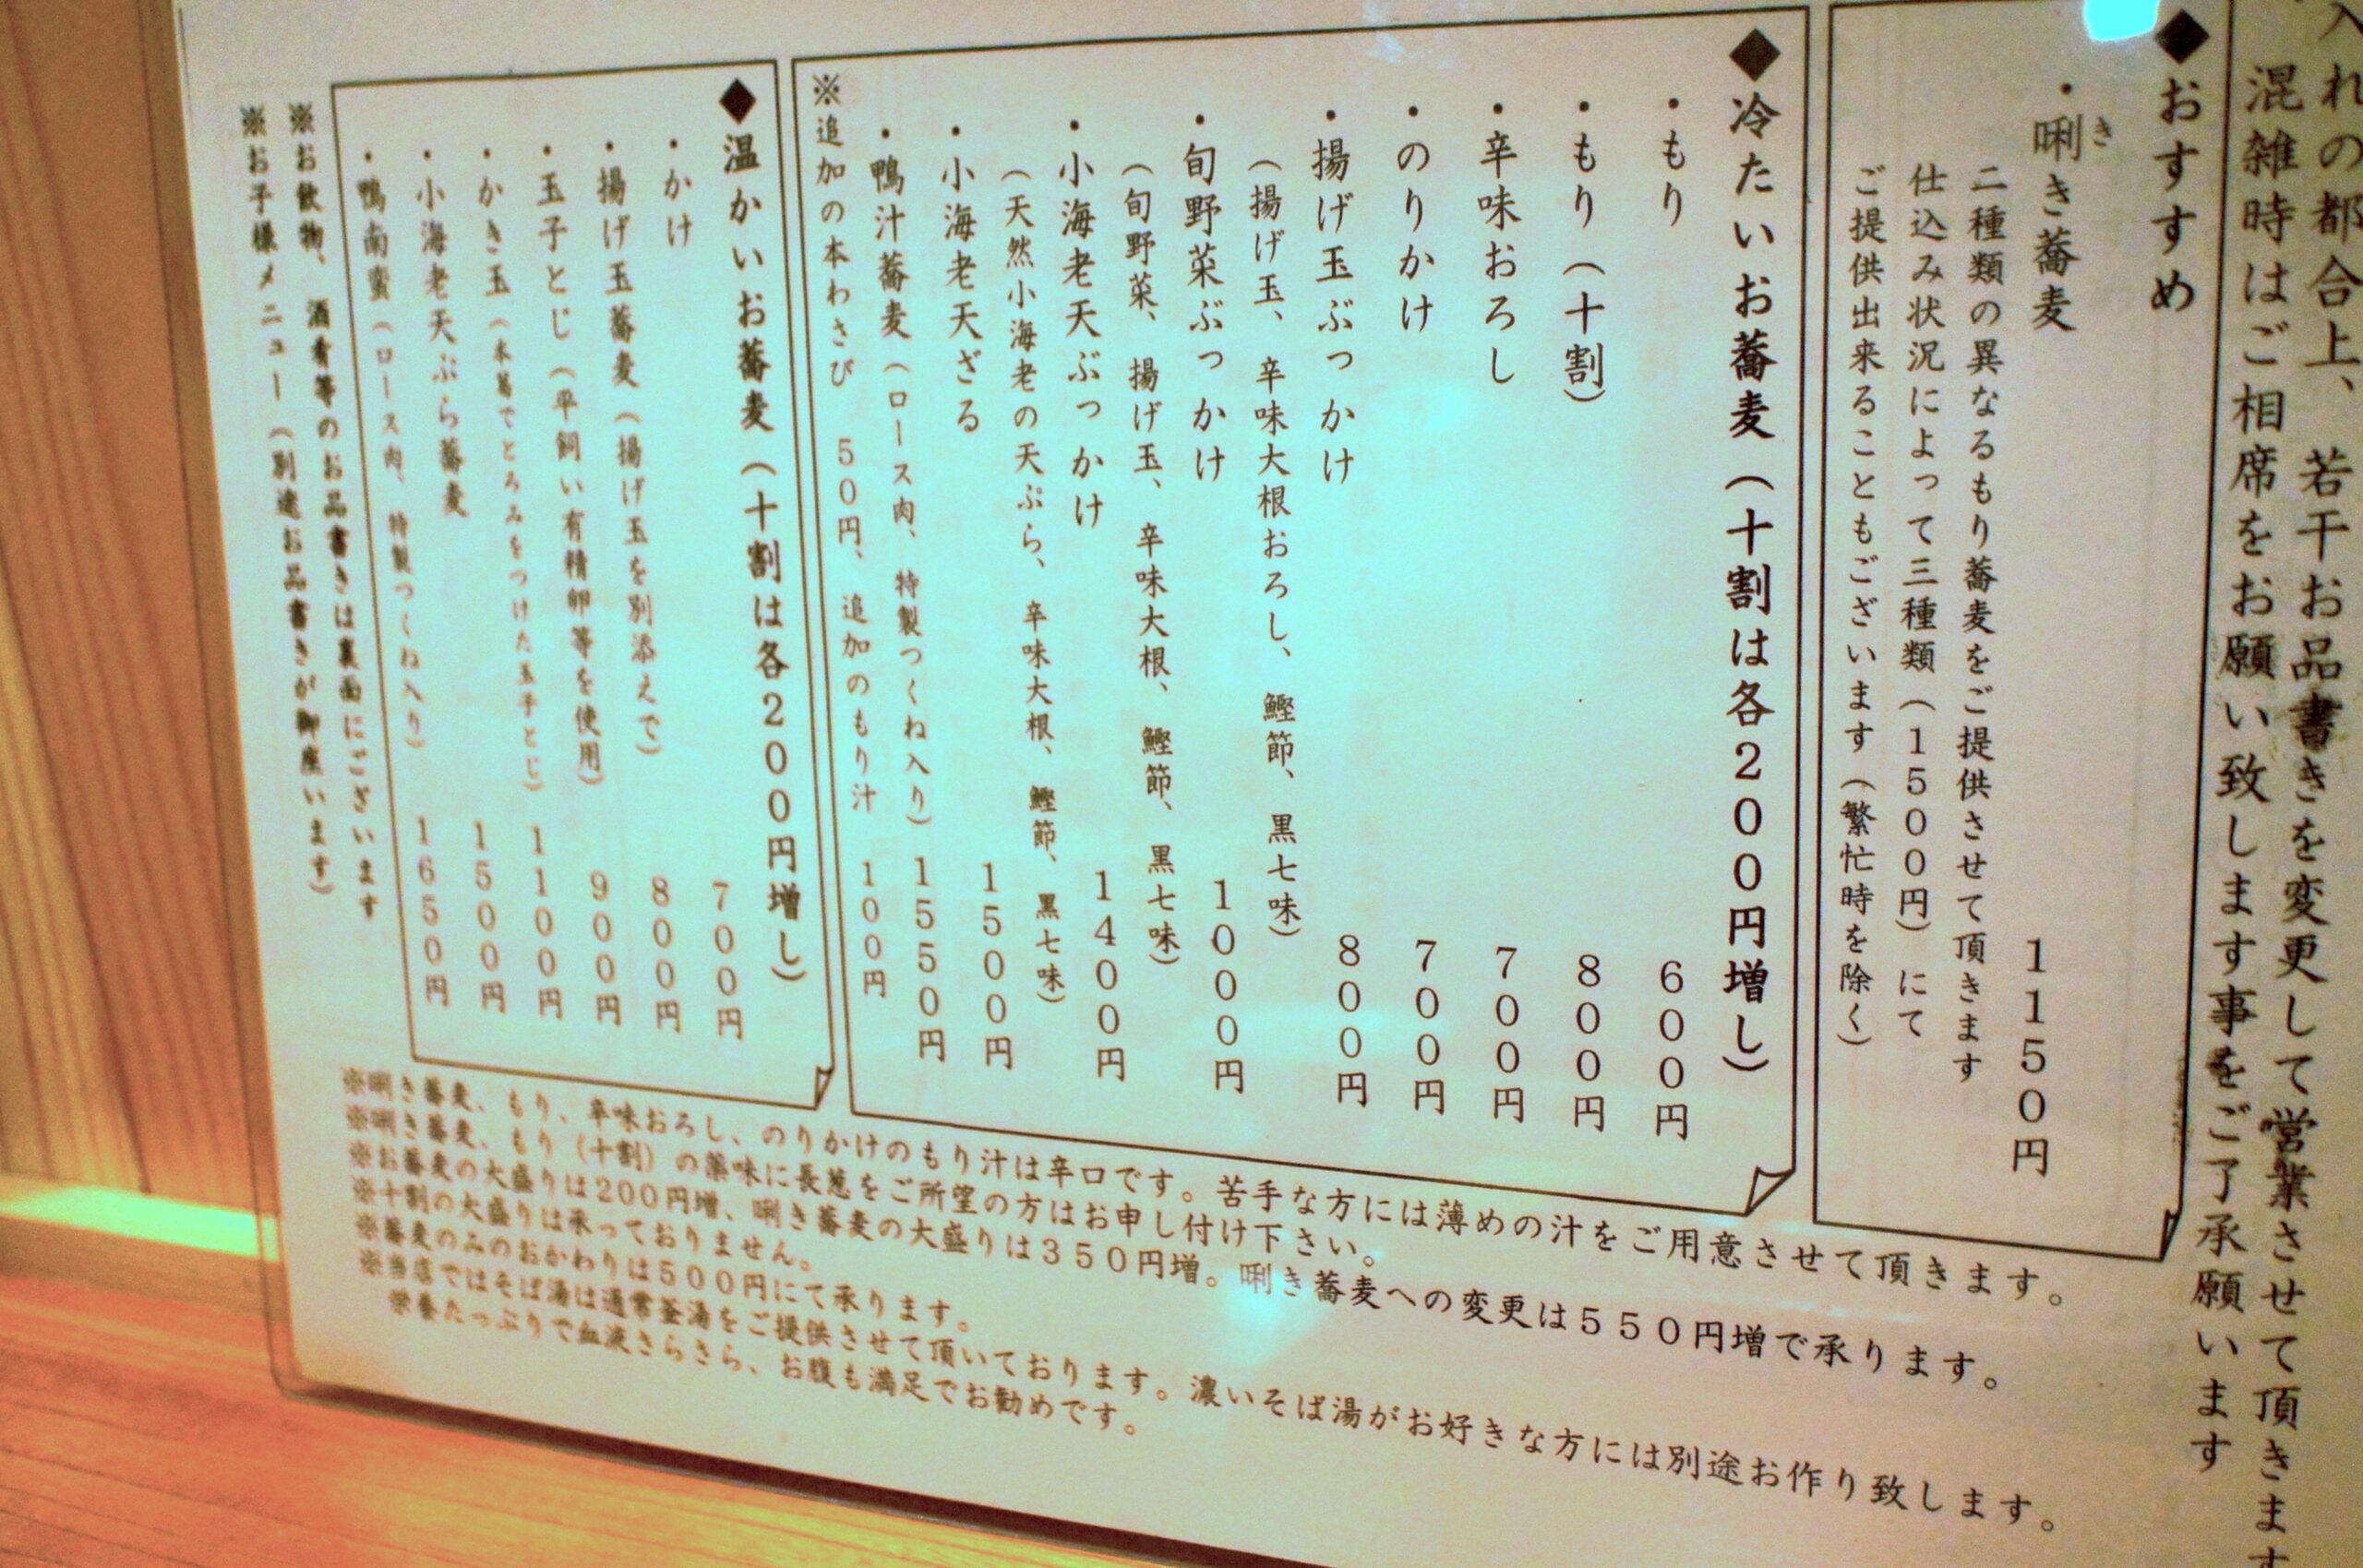 入れの都合上、若干お品書きを変更して営業させて頂きます
混雑時はご相席をお願い致します事をご了承願います
◆おすすめ
き
・唎き蕎麦 1150円
二種類の異なるもり蕎麦をご提供させて頂きます
仕込み状況によって三種類(1500円)にて
ご提供出来ることもございます(繁忙時を除く)
◆冷たいお蕎麦(十割は各200円増し)
・もり 600円
・もり(十割) 800円
・辛味おろし 700円
・のりかけ 700円
・揚げ玉ぶっかけ 800円
(揚げ玉、辛味大根おろし、鰹節、黒七味)
・旬野菜ぶっかけ 1000円
(旬野菜、揚げ玉、辛味大根、鰹節、黒七味)
・小海老天ぶっかけ 1400円
(天然小海老の天ぷら、辛味大根、鰹節、黒七味)
・小海老天ざる 1500円
・鴨汁蕎麦(ロース肉、特製つくね入り) 1550円
※追加の本わさび 50円、追加のもり汁 100円
◆温かいお蕎麦(十割は各200円増し)
・かけ 700円
・揚げ玉蕎麦(揚げ玉を別添えで) 800円
・玉子とじ(平飼い有精卵等を使用) 900円
・かき玉(本葛でとろみをつけた玉子とじ) 1100円
・小海老天ぷら蕎麦 1500円
・鴨南蛮(ロース肉、特製つくね入り) 1650円
※お飲物、酒肴等のお品書きは裏面にございます
※お子様メニュー(別途お品書きが御座います)
※唎き蕎麦、もり、辛味おろし、のりかけのもり汁は辛口です。苦手な方には薄めの汁をご用意させて頂きます。
※唎き蕎麦、もり(十割)の薬味に長葱をご所望の方はお申し付け下さい。
※お蕎麦の大盛りは200円増、唎き蕎麦の大盛りは350円増。唎き蕎麦への変更は550円増で承ります。
※十割の大盛りは承っておりません。
※蕎麦のみのおかわりは500円にて承ります。
※当店ではそば湯は通常釜湯をご提供させて頂いております。濃いそば湯がお好きな方には別途お作り致します。
栄養たっぷりで血液さらさら、お腹も満足でお勧めです。